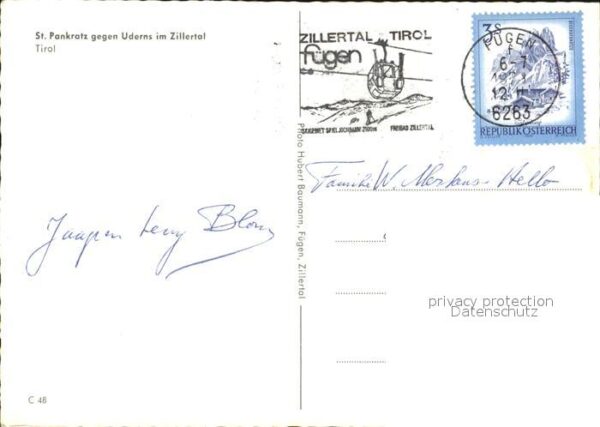 St. Pankratz gegen Uderns im Zillertal
Tirol
ZILLERTAL TIROL
fügen
SKIGEBIET SPIELJOCHBAHN 2100m FREIBAD ZILLERTAL
3S
FÜGEN
6-7
12.
6263
REPUBLIK ÖSTERREICH
Photo Hubert Baumann, Fügen, Zillertal
Familie W. Hello
Jaap en Leny Blom
privacy protection
Datenschutz
C 48